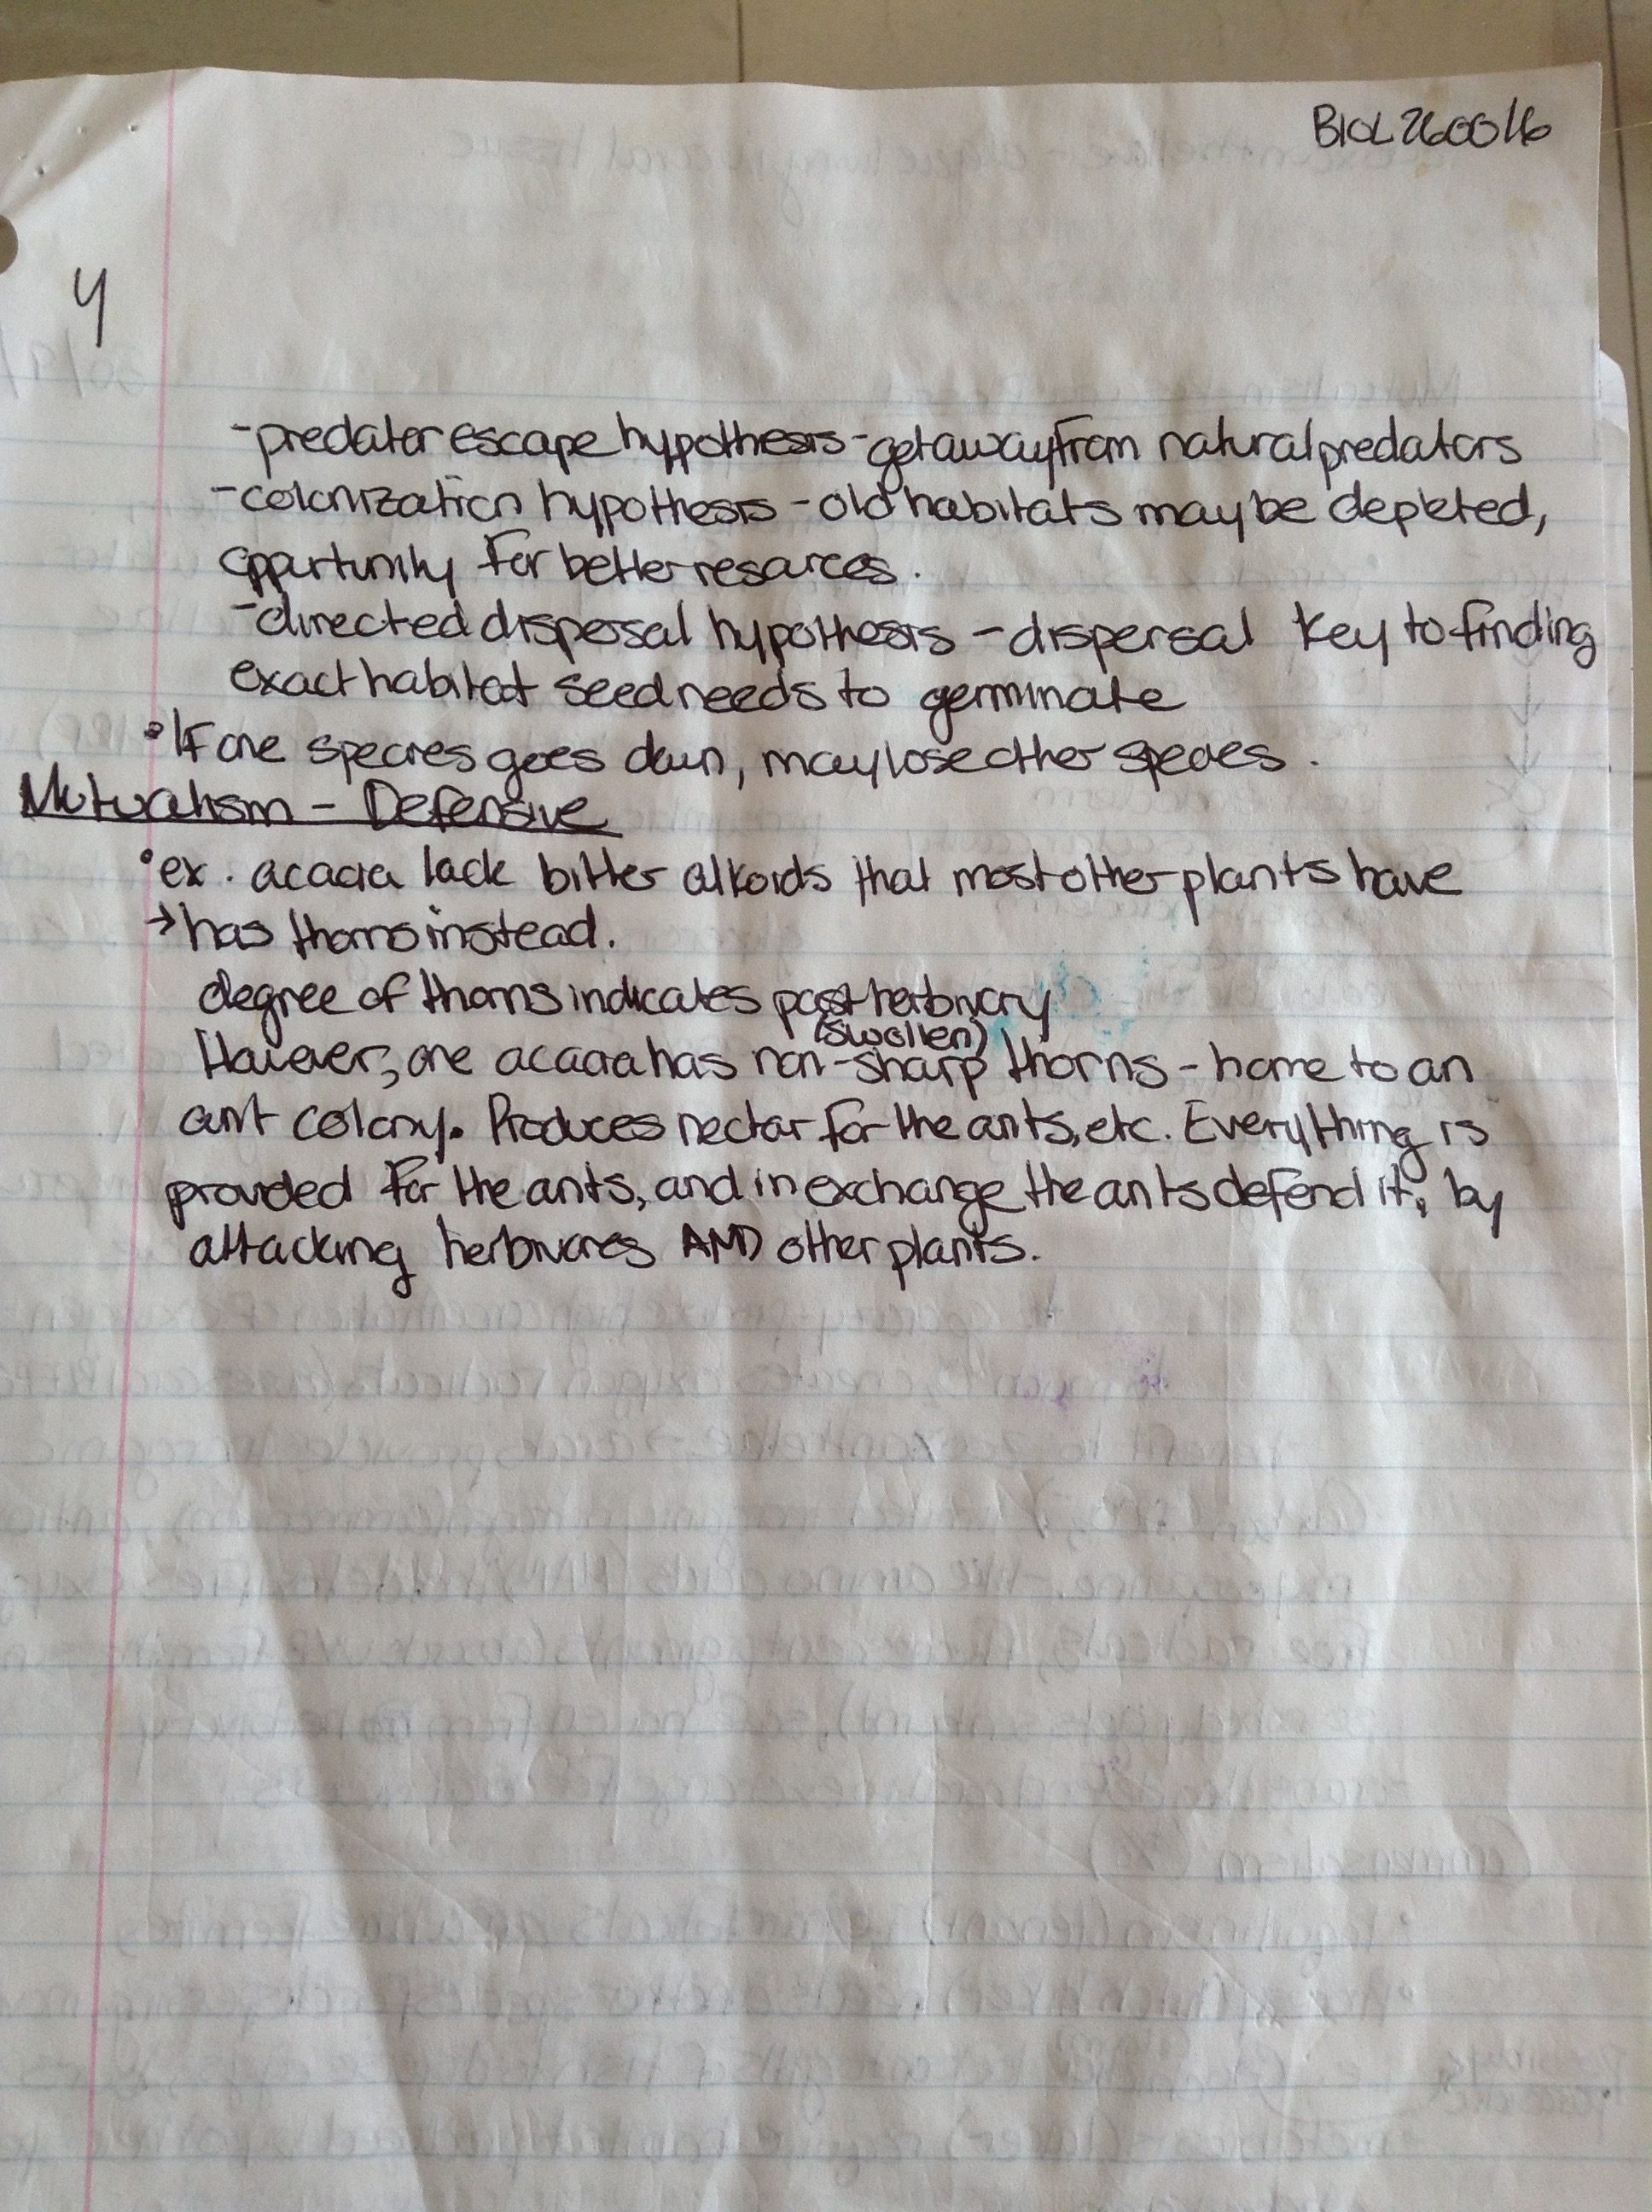 BIOL260016
4
-predator escape hypothesis-get away from natural predators
-colonization hypothesis - old habitats may be depleted,
oppurtunity for better resources.
-directed dispersal hypothesis - dispersal key to finding
exact habitat seed needs to germinate
•If one species goes down, may lose other species.
Mutualism - Defensive
•ex. acacia lack bitter alkoids that most other plants have
→has thorns instead.
degree of thorns indicates past herbivory
(swollen)
However, one acacia has non-sharp thorns - home to an
ant colony. Produces nectar for the ants, etc. Everything is
provided for the ants, and in exchange the ants defend it, by
attacking herbivores AND other plants.